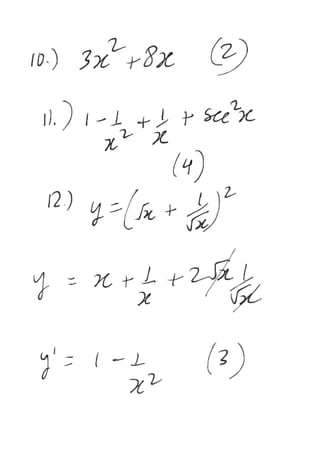 10.) 3x² + 8x (2)
11.) 1 - 1/x² + 1/x + sec²x
(4)
12.) y = (√x + 1/√x)²
y = x + 1/x + 2√x 1/√x
y' = 1 - 1/x² (3)